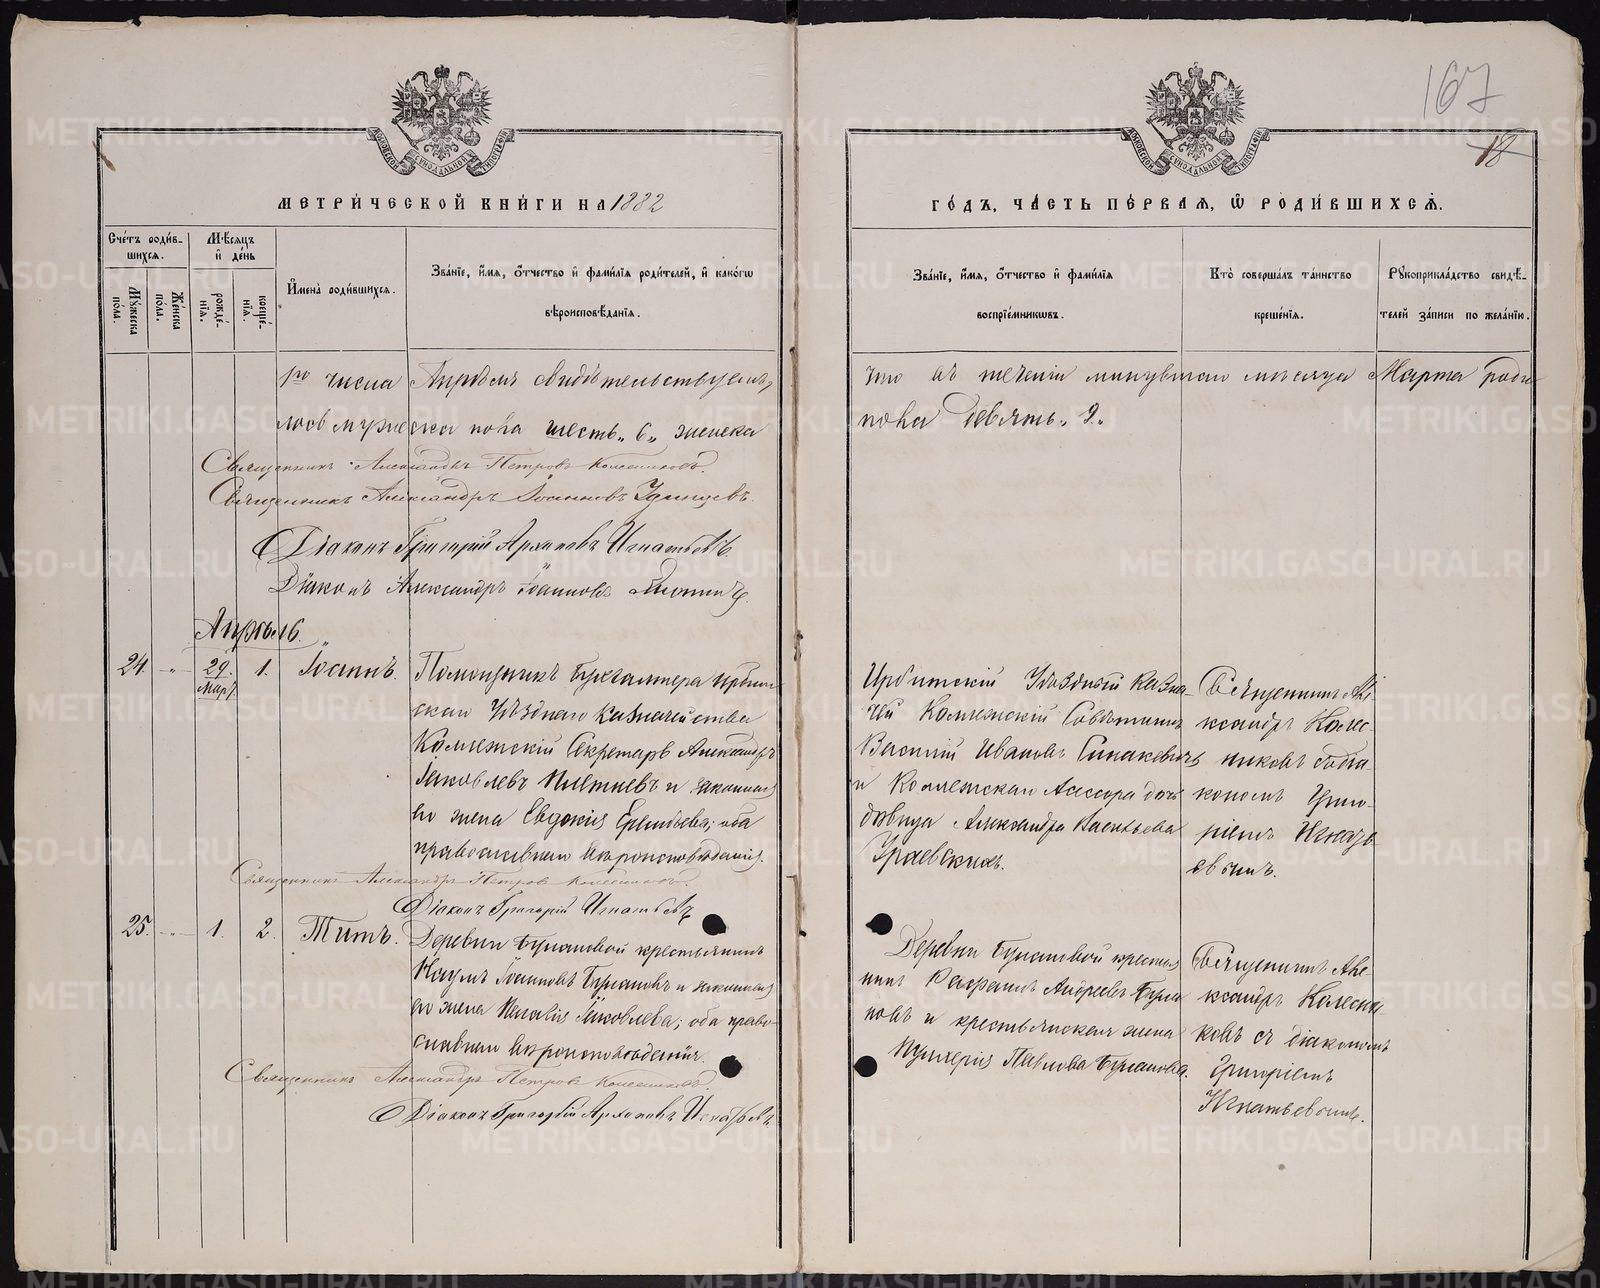 167
18
МЕТРИЧЕСКОЙ КНИГИ НА 1882
ГОДЪ, ЧАСТЬ ПЕРВАЯ, Ѡ РОДИВШИХСЯ.
Счетъ родившихся.
Мѣсяцъ и день
Имена родившихся.
Званіе, имя, отчество и фамилія родителей, и какогѡ
вѣроисповѣданія.
Мужеска пола.
Женска пола.
рожденія.
крещенія.
Званіе, имя, отчество и фамилія
воспріемникѡвъ.
Кто совершалъ таинство
крещенія.
Рукоприкладство свидѣ-
телей записи по желанію.
1го числа Апрѣля свидѣтельствуемъ,
что въ теченіи минувшаго мѣсяца Марта роди-
лось мужеска пола шесть „6„ женска
пола девять „9„
Священникъ Александръ Петровъ Колесниковъ.
Священникъ Александръ Іоанновъ
Діаконъ Григорій Архиповъ Игнатьевъ
Діаконъ Александръ Іоанновъ
Апрѣль
24. „ 29. Мар. 1. Іоаннъ.
Помощникъ Бухгалтера Ирбит-
скаго Уѣзднаго Казначейства
Коллежскій Секретарь Александръ
Іаковлевъ Плетневъ и законная
его жена Евдокія; оба
православнаго вѣроисповѣданія.
Ирбитскій Уѣздный Казна-
чей Коллежскій Совѣтникъ
Василій Ивановъ Синакевичъ
и Коллежскаго Ассесора дочь
дѣвица Александра Васильева
Священникъ Але-
ксандръ Колес-
никовъ съ діа-
кономъ Григо-
ріемъ Игнать-
евымъ.
Священникъ Александръ Петровъ Колесниковъ.
Діаконъ Григорій Игнатьевъ
25. „ 1. 2. Титъ.
Деревни Булановой крестьянинъ
Наумъ Іоанновъ Булановъ и законная
его жена Пелагія Іаковлева; оба право-
славнаго вѣроисповѣданія.
Деревни Булановой крестья-
нинъ Андреевъ Була-
новъ и крестьянская жена
Пулхерія Павлова Буланова.
Священникъ Але-
ксандръ Колесни-
ковъ съ діакономъ
Григоріемъ
Игнатьевымъ.
Священникъ Александръ Петровъ Колесниковъ.
Діаконъ Григорій Архиповъ Игнатьевъ